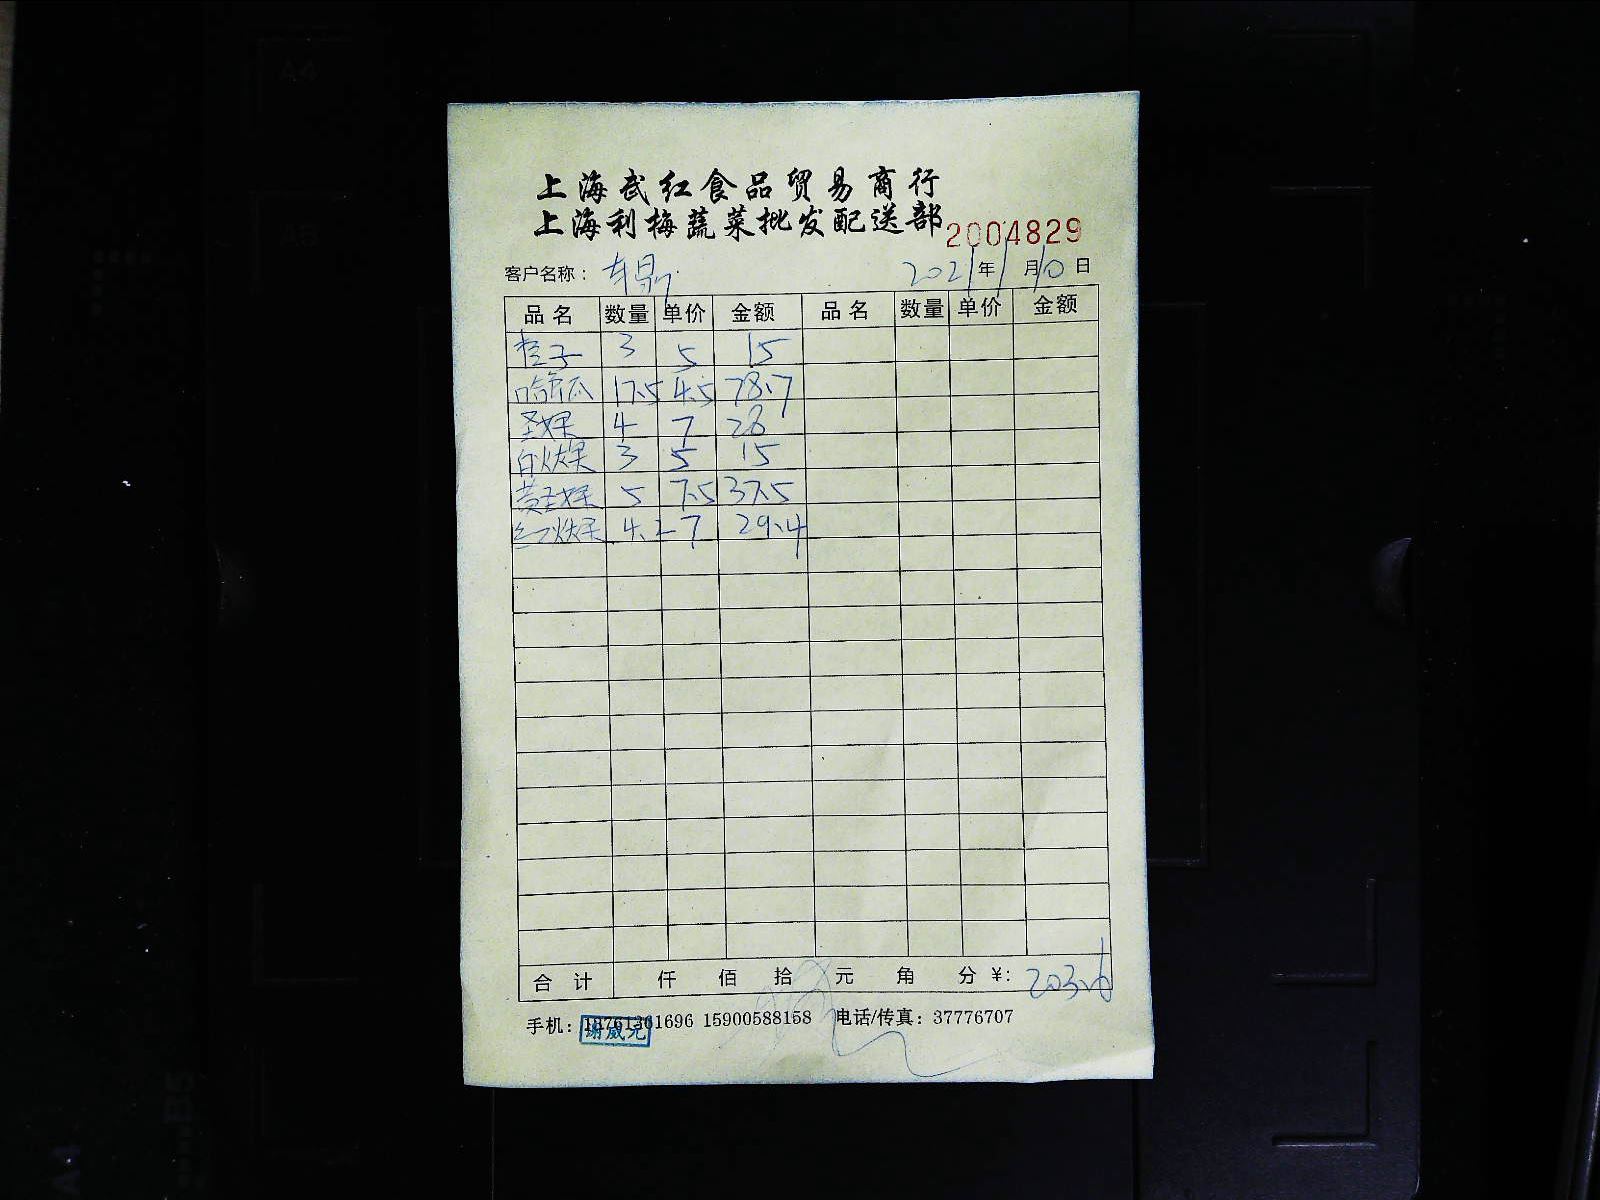 上海武红食品贸易商行
上海利梅蔬菜批发配送部 2004829
客户名称： 2021年1月10日
品名 数量 单价 金额 品名 数量 单价 金额
橙子 3 5 15
哈密瓜 17.5 4.5 78.7
圣女果 4 7 28
白火龙果 3 5 15
黄圣女果 5 7.5 37.5
红火龙果 4.2 7 29.4
合计 仟 佰 拾 元 角 分 ¥: 203.6
手机: 18761361696 15900588158 电话/传真: 37776707
谢威克
A4
A5
B5
A4